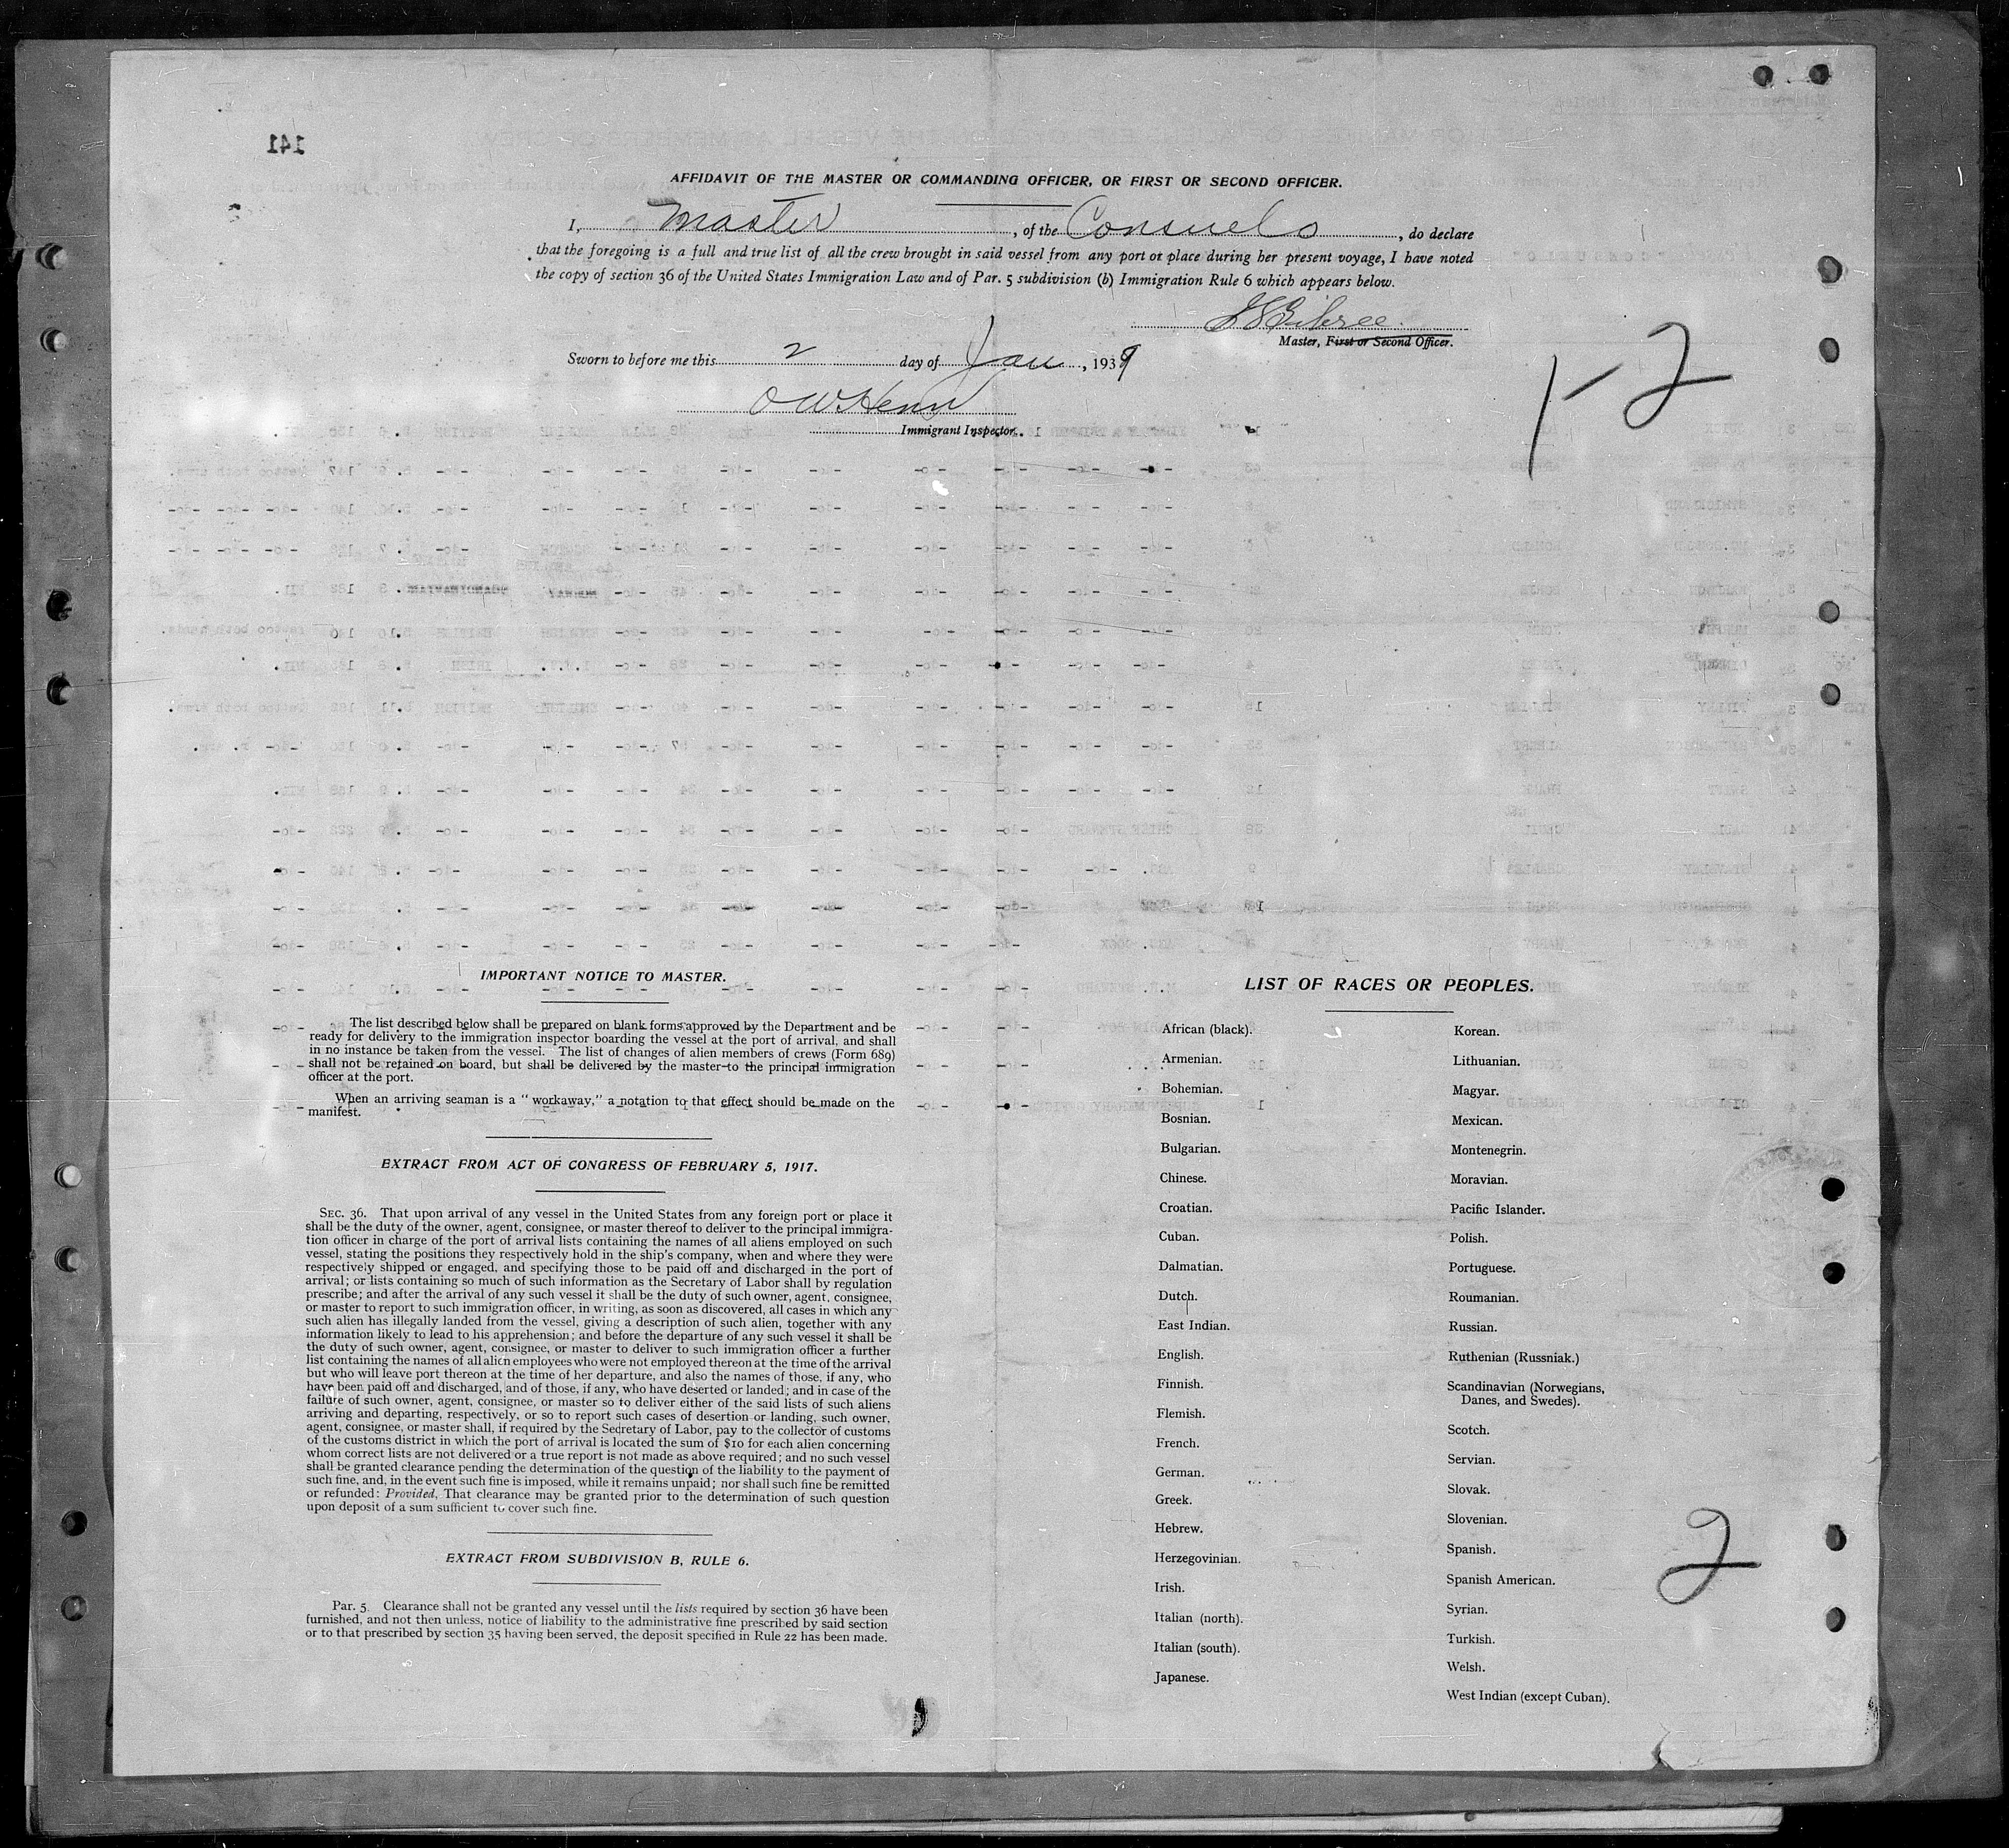 141
AFFIDAVIT OF THE MASTER OR COMMANDING OFFICER, OR FIRST OR SECOND OFFICER.
I, Master, of the Consuelo, do declare
that the foregoing is a full and true list of all the crew brought in said vessel from any port or place during her present voyage, I have noted
the copy of section 36 of the United States Immigration Law and of Par. 5 subdivision (b) Immigration Rule 6 which appears below.
Master, First or Second Officer.
Sworn to before me this 2 day of Jan, 1939
O W Henry
Immigrant Inspector.
1-2
IMPORTANT NOTICE TO MASTER.
The list described below shall be prepared on blank forms approved by the Department and be
ready for delivery to the immigration inspector boarding the vessel at the port of arrival, and shall
in no instance be taken from the vessel. The list of changes of alien members of crews (Form 689)
shall not be retained on board, but shall be delivered by the master to the principal immigration
officer at the port.
When an arriving seaman is a "workaway," a notation to that effect should be made on the
manifest.
EXTRACT FROM ACT OF CONGRESS OF FEBRUARY 5, 1917.
SEC. 36. That upon arrival of any vessel in the United States from any foreign port or place it
shall be the duty of the owner, agent, consignee, or master thereof to deliver to the principal immigra-
tion officer in charge of the port of arrival lists containing the names of all aliens employed on such
vessel, stating the positions they respectively hold in the ship's company, when and where they were
respectively shipped or engaged, and specifying those to be paid off and discharged in the port of
arrival; or lists containing so much of such information as the Secretary of Labor shall by regulation
prescribe; and after the arrival of any such vessel it shall be the duty of such owner, agent, consignee,
or master to report to such immigration officer, in writing, as soon as discovered, all cases in which any
such alien has illegally landed from the vessel, giving a description of such alien, together with any
information likely to lead to his apprehension; and before the departure of any such vessel it shall be
the duty of such owner, agent, consignee, or master to deliver to such immigration officer a further
list containing the names of all alien employees who were not employed thereon at the time of the arrival
but who will leave port thereon at the time of her departure, and also the names of those, if any, who
have been paid off and discharged, and of those, if any, who have deserted or landed; and in case of the
failure of such owner, agent, consignee, or master so to deliver either of the said lists of such aliens
arriving and departing, respectively, or so to report such cases of desertion or landing, such owner,
agent, consignee, or master shall, if required by the Secretary of Labor, pay to the collector of customs
of the customs district in which the port of arrival is located the sum of $10 for each alien concerning
whom correct lists are not delivered or a true report is not made as above required; and no such vessel
shall be granted clearance pending the determination of the question of the liability to the payment of
such fine, and, in the event such fine is imposed, while it remains unpaid; nor shall such fine be remitted
or refunded: Provided, That clearance may be granted prior to the determination of such question
upon deposit of a sum sufficient to cover such fine.
EXTRACT FROM SUBDIVISION B, RULE 6.
Par. 5. Clearance shall not be granted any vessel until the lists required by section 36 have been
furnished, and not then unless, notice of liability to the administrative fine prescribed by said section
or to that prescribed by section 35 having been served, the deposit specified in Rule 22 has been made.
LIST OF RACES OR PEOPLES.
African (black).
Armenian.
Bohemian.
Bosnian.
Bulgarian.
Chinese.
Croatian.
Cuban.
Dalmatian.
Dutch.
East Indian.
English.
Finnish.
Flemish.
French.
German.
Greek.
Hebrew.
Herzegovinian.
Irish.
Italian (north).
Italian (south).
Japanese.
Korean.
Lithuanian.
Magyar.
Mexican.
Montenegrin.
Moravian.
Pacific Islander.
Polish.
Portuguese.
Roumanian.
Russian.
Ruthenian (Russniak.)
Scandinavian (Norwegians,
Danes, and Swedes).
Scotch.
Servian.
Slovak.
Slovenian.
Spanish.
Spanish American.
Syrian.
Turkish.
Welsh.
West Indian (except Cuban).
2